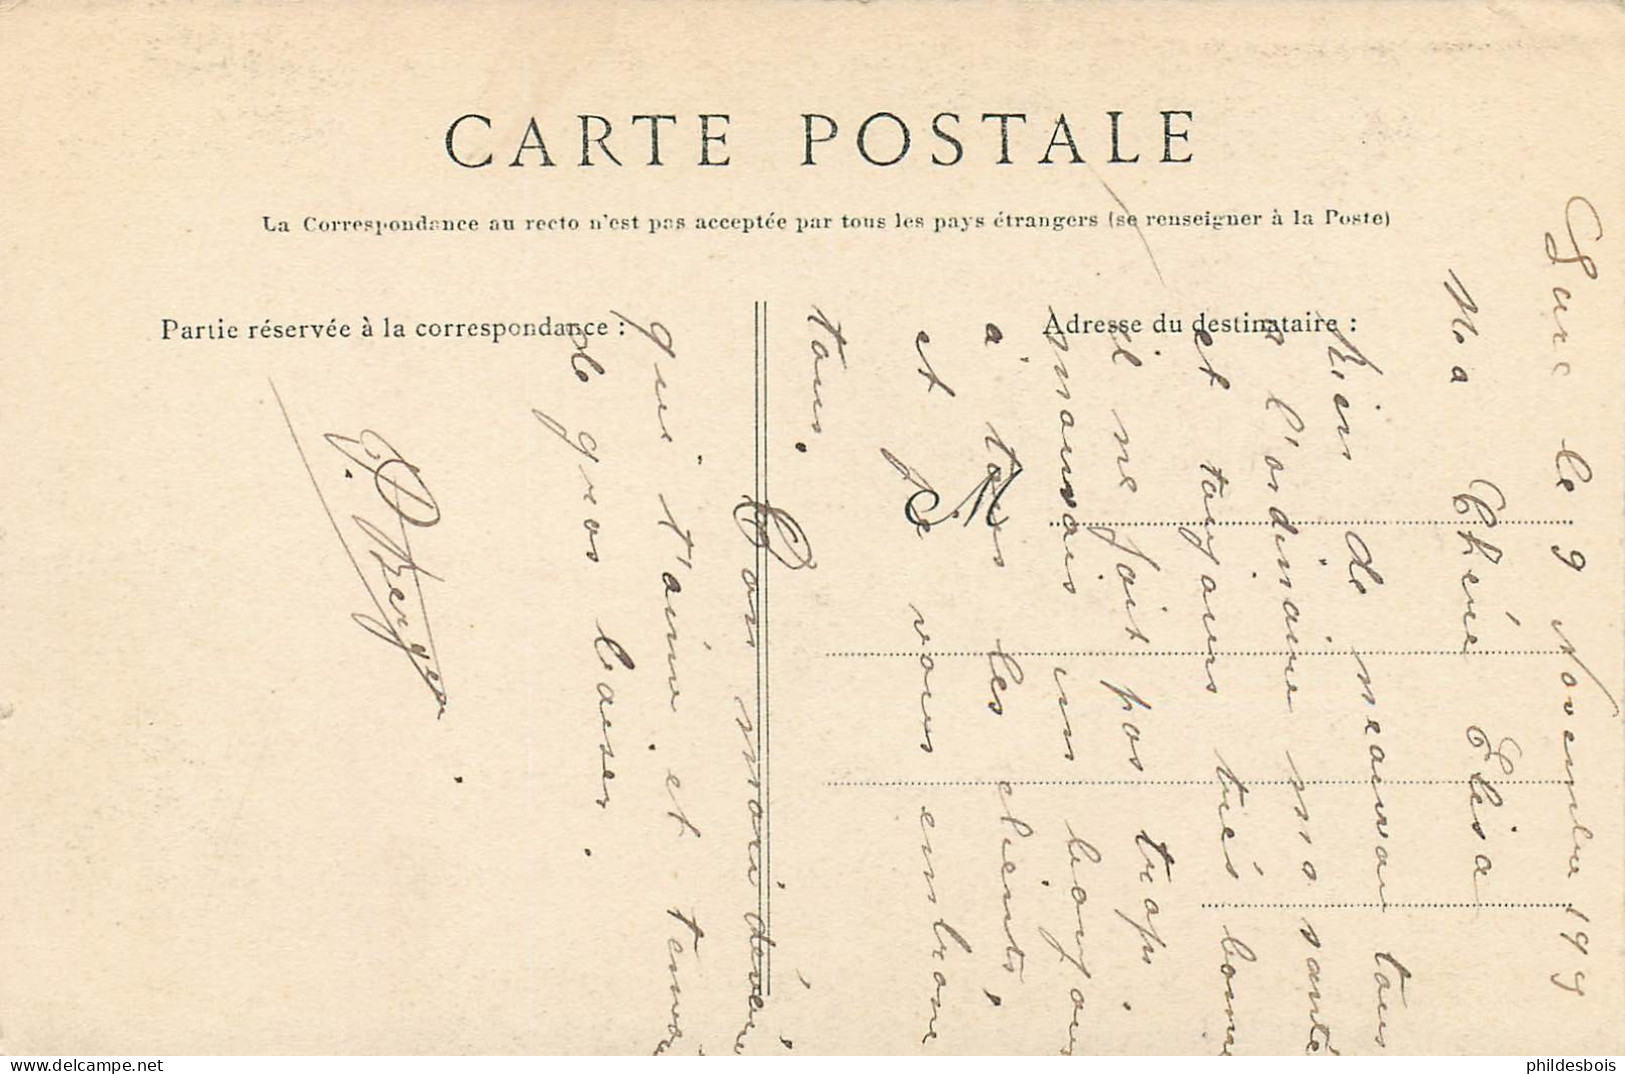 CARTE POSTALE
La Correspondance au recto n'est pas acceptée par tous les pays étrangers (se renseigner à la Poste)
Partie réservée à la correspondance :
Adresse du destinataire :
M
le 9 Novembre 19
Ma Chérie Elisa
Rien de nouveau tous
a l'ordinaire ma santé
et toujours très bonne
il ne fait pas trop
mauvais un
à tous les clients,
et je vous embrasse
tous.
Ton mari
qui t'aime et
de gros baiser.
Berger
phildesbois
delcampe.net